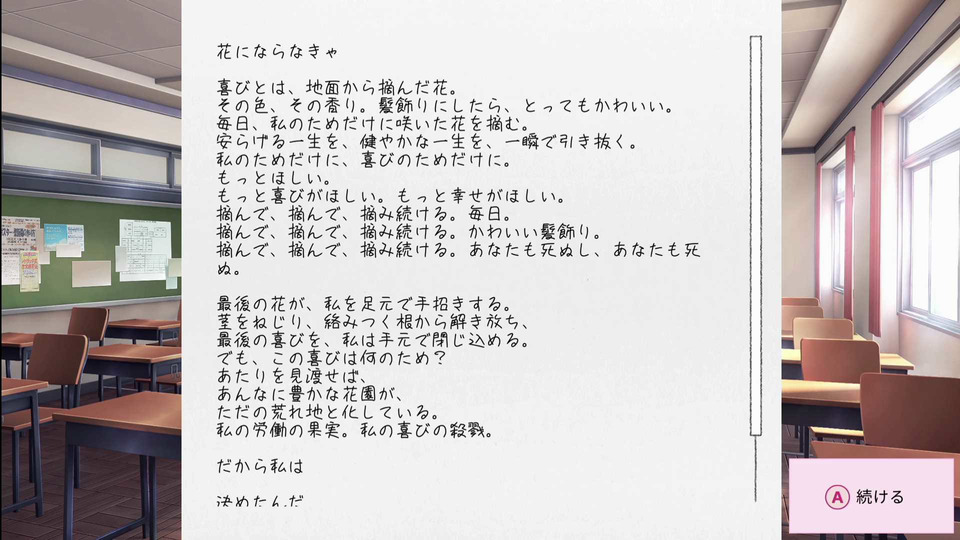 花にならなきゃ
喜びとは、地面から摘んだ花。
その色、その香り。髪飾りにしたら、とってもかわいい。
毎日、私のためだけに咲いた花を摘む。
安らげる一生を、健やかな一生を、一瞬で引き抜く。
私のためだけに、喜びのためだけに。
もっとほしい。
もっと喜びがほしい。もっと幸せがほしい。
摘んで、摘んで、摘み続ける。毎日。
摘んで、摘んで、摘み続ける。かわいい髪飾り。
摘んで、摘んで、摘み続ける。あなたも死ぬし、あなたも死
ぬ。
最後の花が、私を足元で手招きする。
茎をねじり、絡みつく根から解き放ち、
最後の喜びを、私は手元で閉じ込める。
でも、この喜びは何のため？
あたりを見渡せば、
あんなに豊かな花園が、
ただの荒れ地と化している。
私の労働の果実。私の喜びの殺戮。
だから私は
決めたんだ
A 続ける